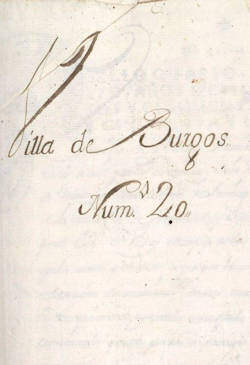 Villa de Burgos.
Num.º 20.